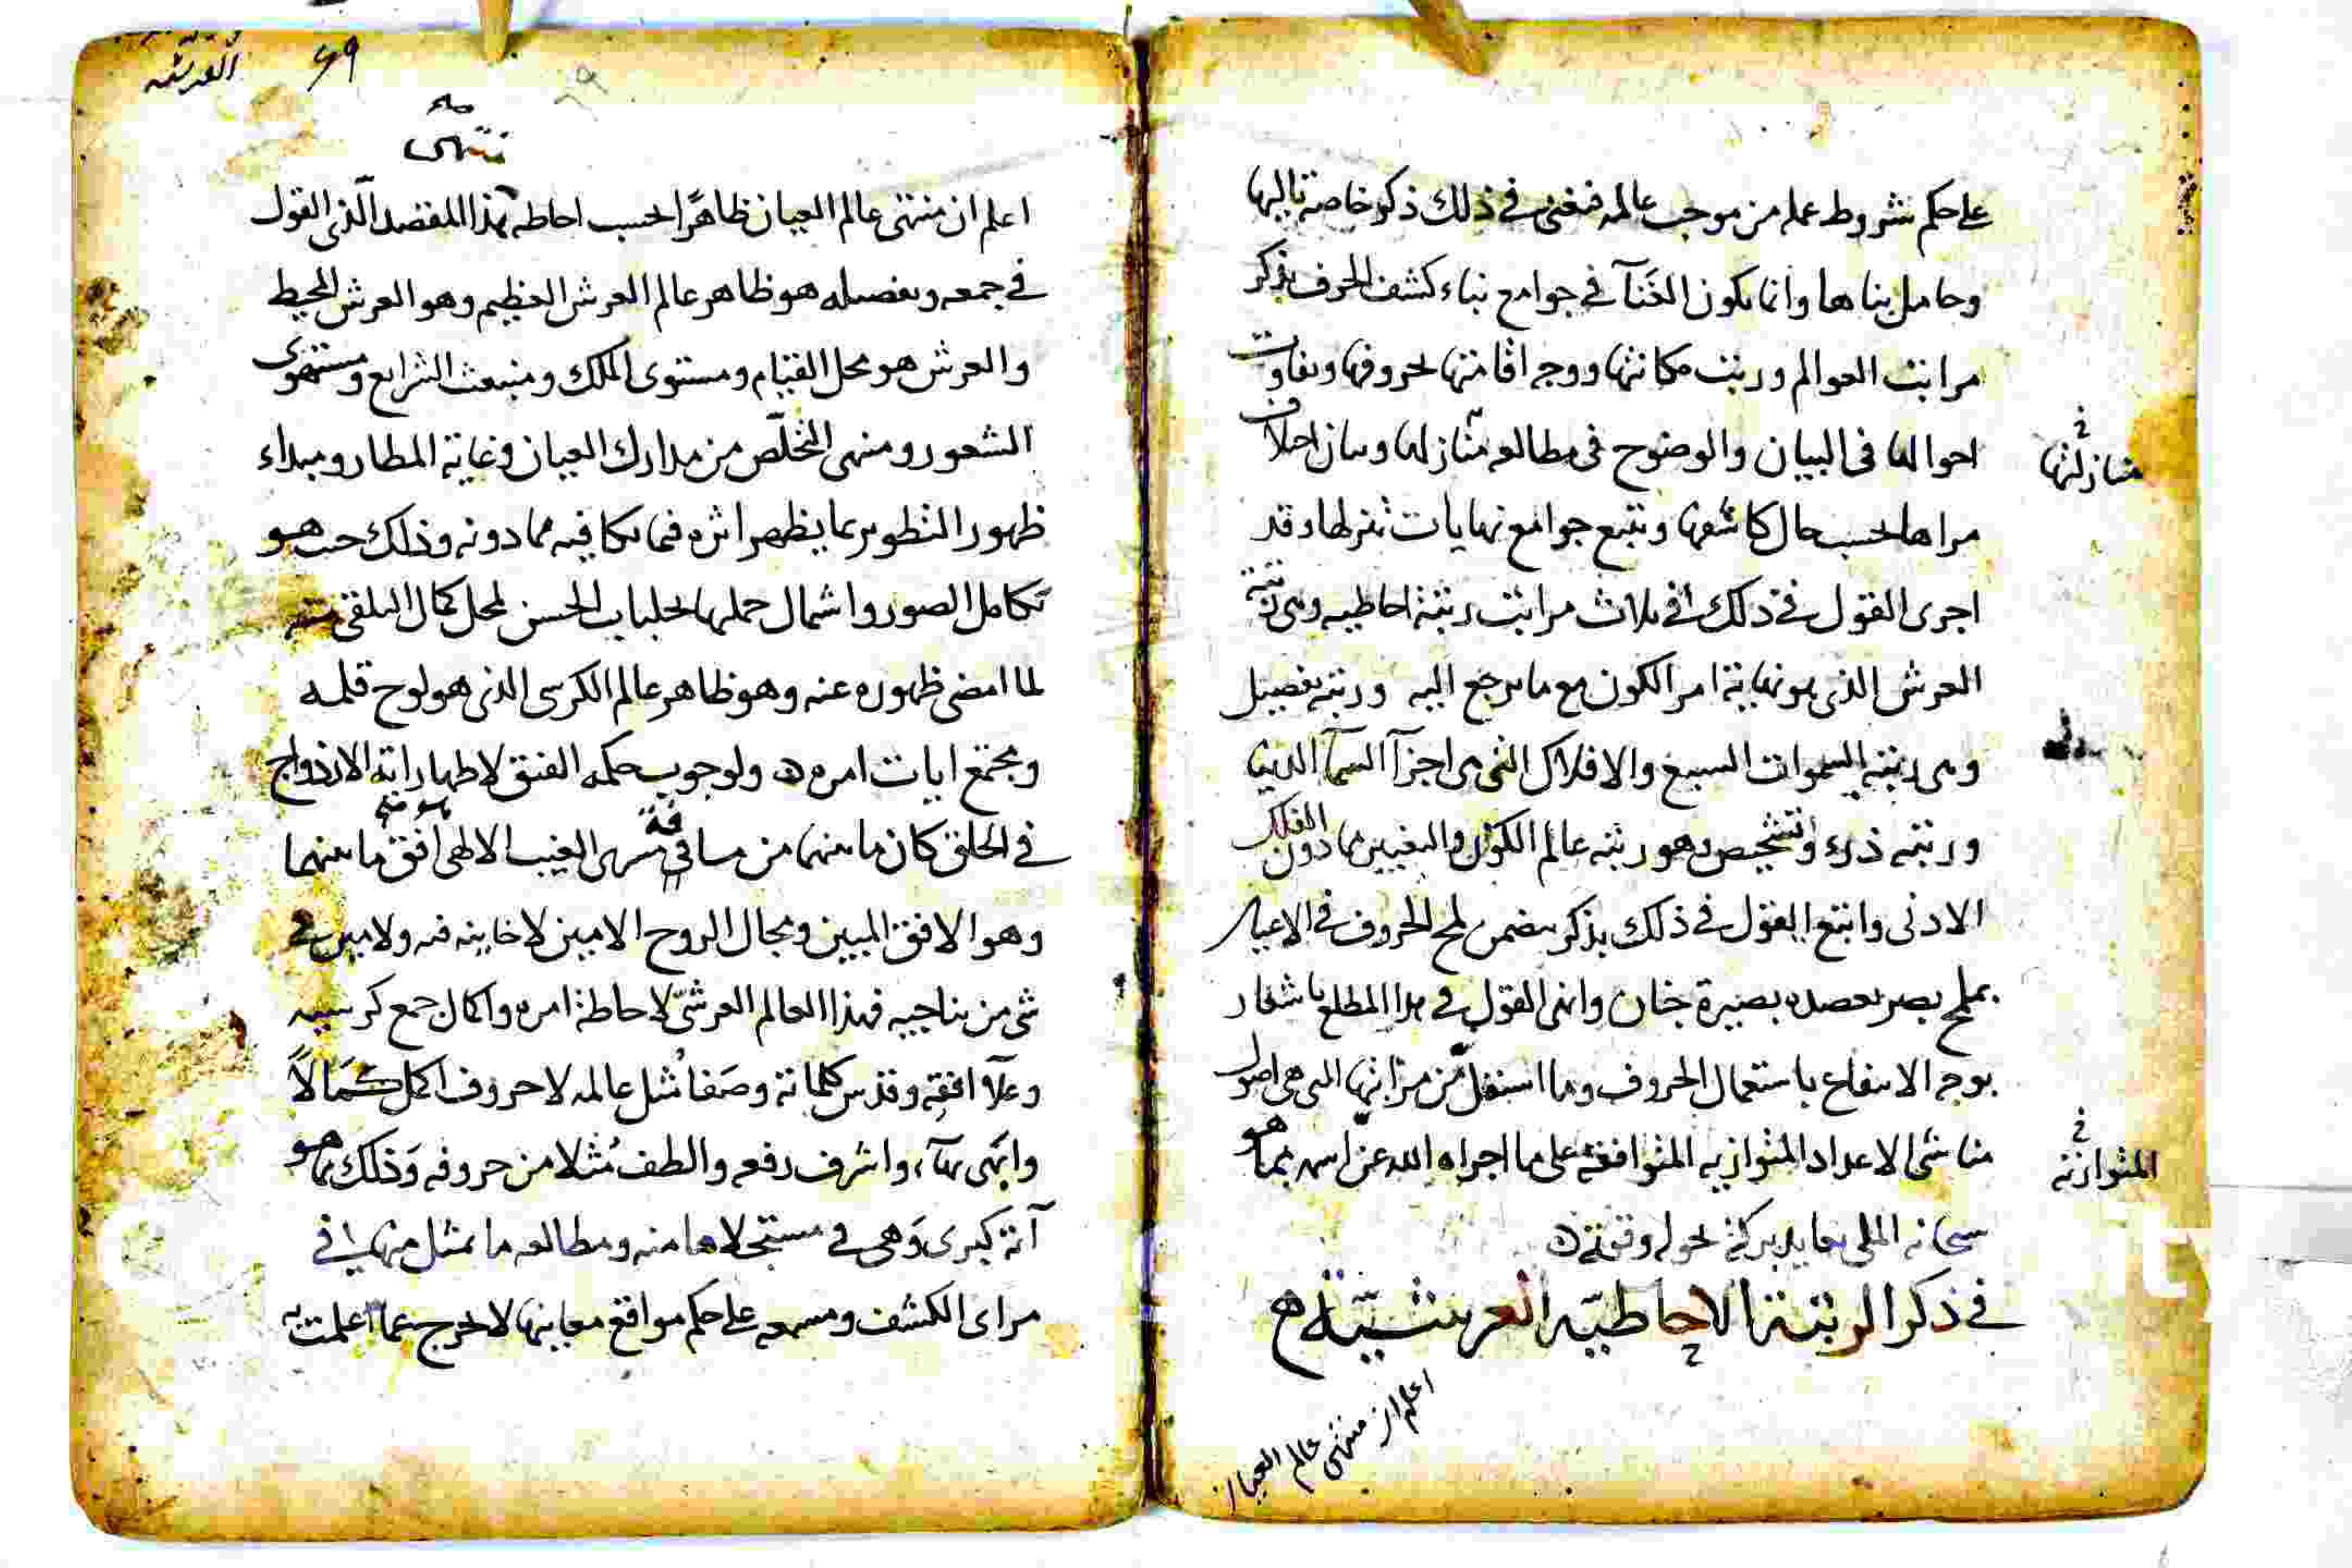 على حكم شروط عمله من موجب عالمه فنغنى في ذلك ذكر خاصة تاليها
وحامل بناها وانما يكون الغنآ في جوامع بناء كشف الحرف بذكر
مراتب العوالم ورتب مكانتها ووجه اقامتها لحروفها وتفاوت
احوالها في البيان والوضوح في مطالعه منازلها وبيان اختلاف
منازلتها
مراها بحسب حال كاشفها وتتبع جوامع نهايات تنزلها وقد
اجرى القول في ذلك في ثلاث مراتب رتبة احاطيه وهى رتبة
العرش الذى هو نهاية امر الكون مع ما يرجع اليه ورتبه تفصيل
وهى رتبته السموات السبع والافلاك التى هى اجزآ السمآ الدنيا
ورتبته ذرء وتشخيص وهو رتبه عالم الكون والتغيير مما دون الفلك
الادنى واتبع القول في ذلك بذكر يتضمن لمح الحروف في الاعيان
بملمح بصر بصيرة جنان وانهى القول في هذا المطلع باشعار
بوجه الانتفاع باستعمال الحروف وما استقل من مراتبها التى هى اصول
مناشى الاعداد المتوازيه المتوافقة على ما اجراه الله عن اسمه بما هو
المتوازنة
سبحانه الملى بتاييد بركة بحوله وقوته
في ذكر الرتبة الاحاطيّه العرشيّة
اعلم ان منتهى عالم العيان
العرشيه
٦٩
منتهى
اعلم ان منتهى عالم العيان ظاهرًا بحسب احاطه هذا المقصد الّذى القول
في جمعه وتفصيله هو ظاهر عالم العرش العظيم وهو العرش المحيط
والعرش هو محل القيام ومستوى الملك ومنبعث الشرايع ومستهوى
الشعور ومنهى التخلّص من مدارك العيان وغاية المطار ومبداء
ظهور التطوير بما يظهر اثره فيما يكافيه مما دونه وذلك حيث هو
تكامل الصور واشمال حملها لجلباب الحسن لمحل كمال التلقى منه
لما امضى ظهوره عنه وهو ظاهر عالم الكرسى الذى هو لوح قلمه
ومجتمع ايات امره ولوجوب حكمه الفتق لاظهار اية الازدواج
في الخلق كان ما بينهما من مسافة مسرى الغيب الالهى هو منتهى افق ما بينهما
وهو الافق المبين ومجال الروح الامين لاخاينه فيه ولا مين في
شى من تناجيه فهذا العالم العرشىّ لاحاطة امره واكمال جمع كرسيه
وعلآ افقه وقدس كلماته وصفا مُثل عالمه لا حروف اكمل كمالاً
وابهى بهآء واشرف رفعه والطف مُثلا من حروفه وذلك بما هو
آية كبرى وهى في مستجلاها منه ومطالعه ما يمثل منها في
مراى الكشف ومسمعه على حكم مواقع معاينها لا يخرج عما اعلمت به